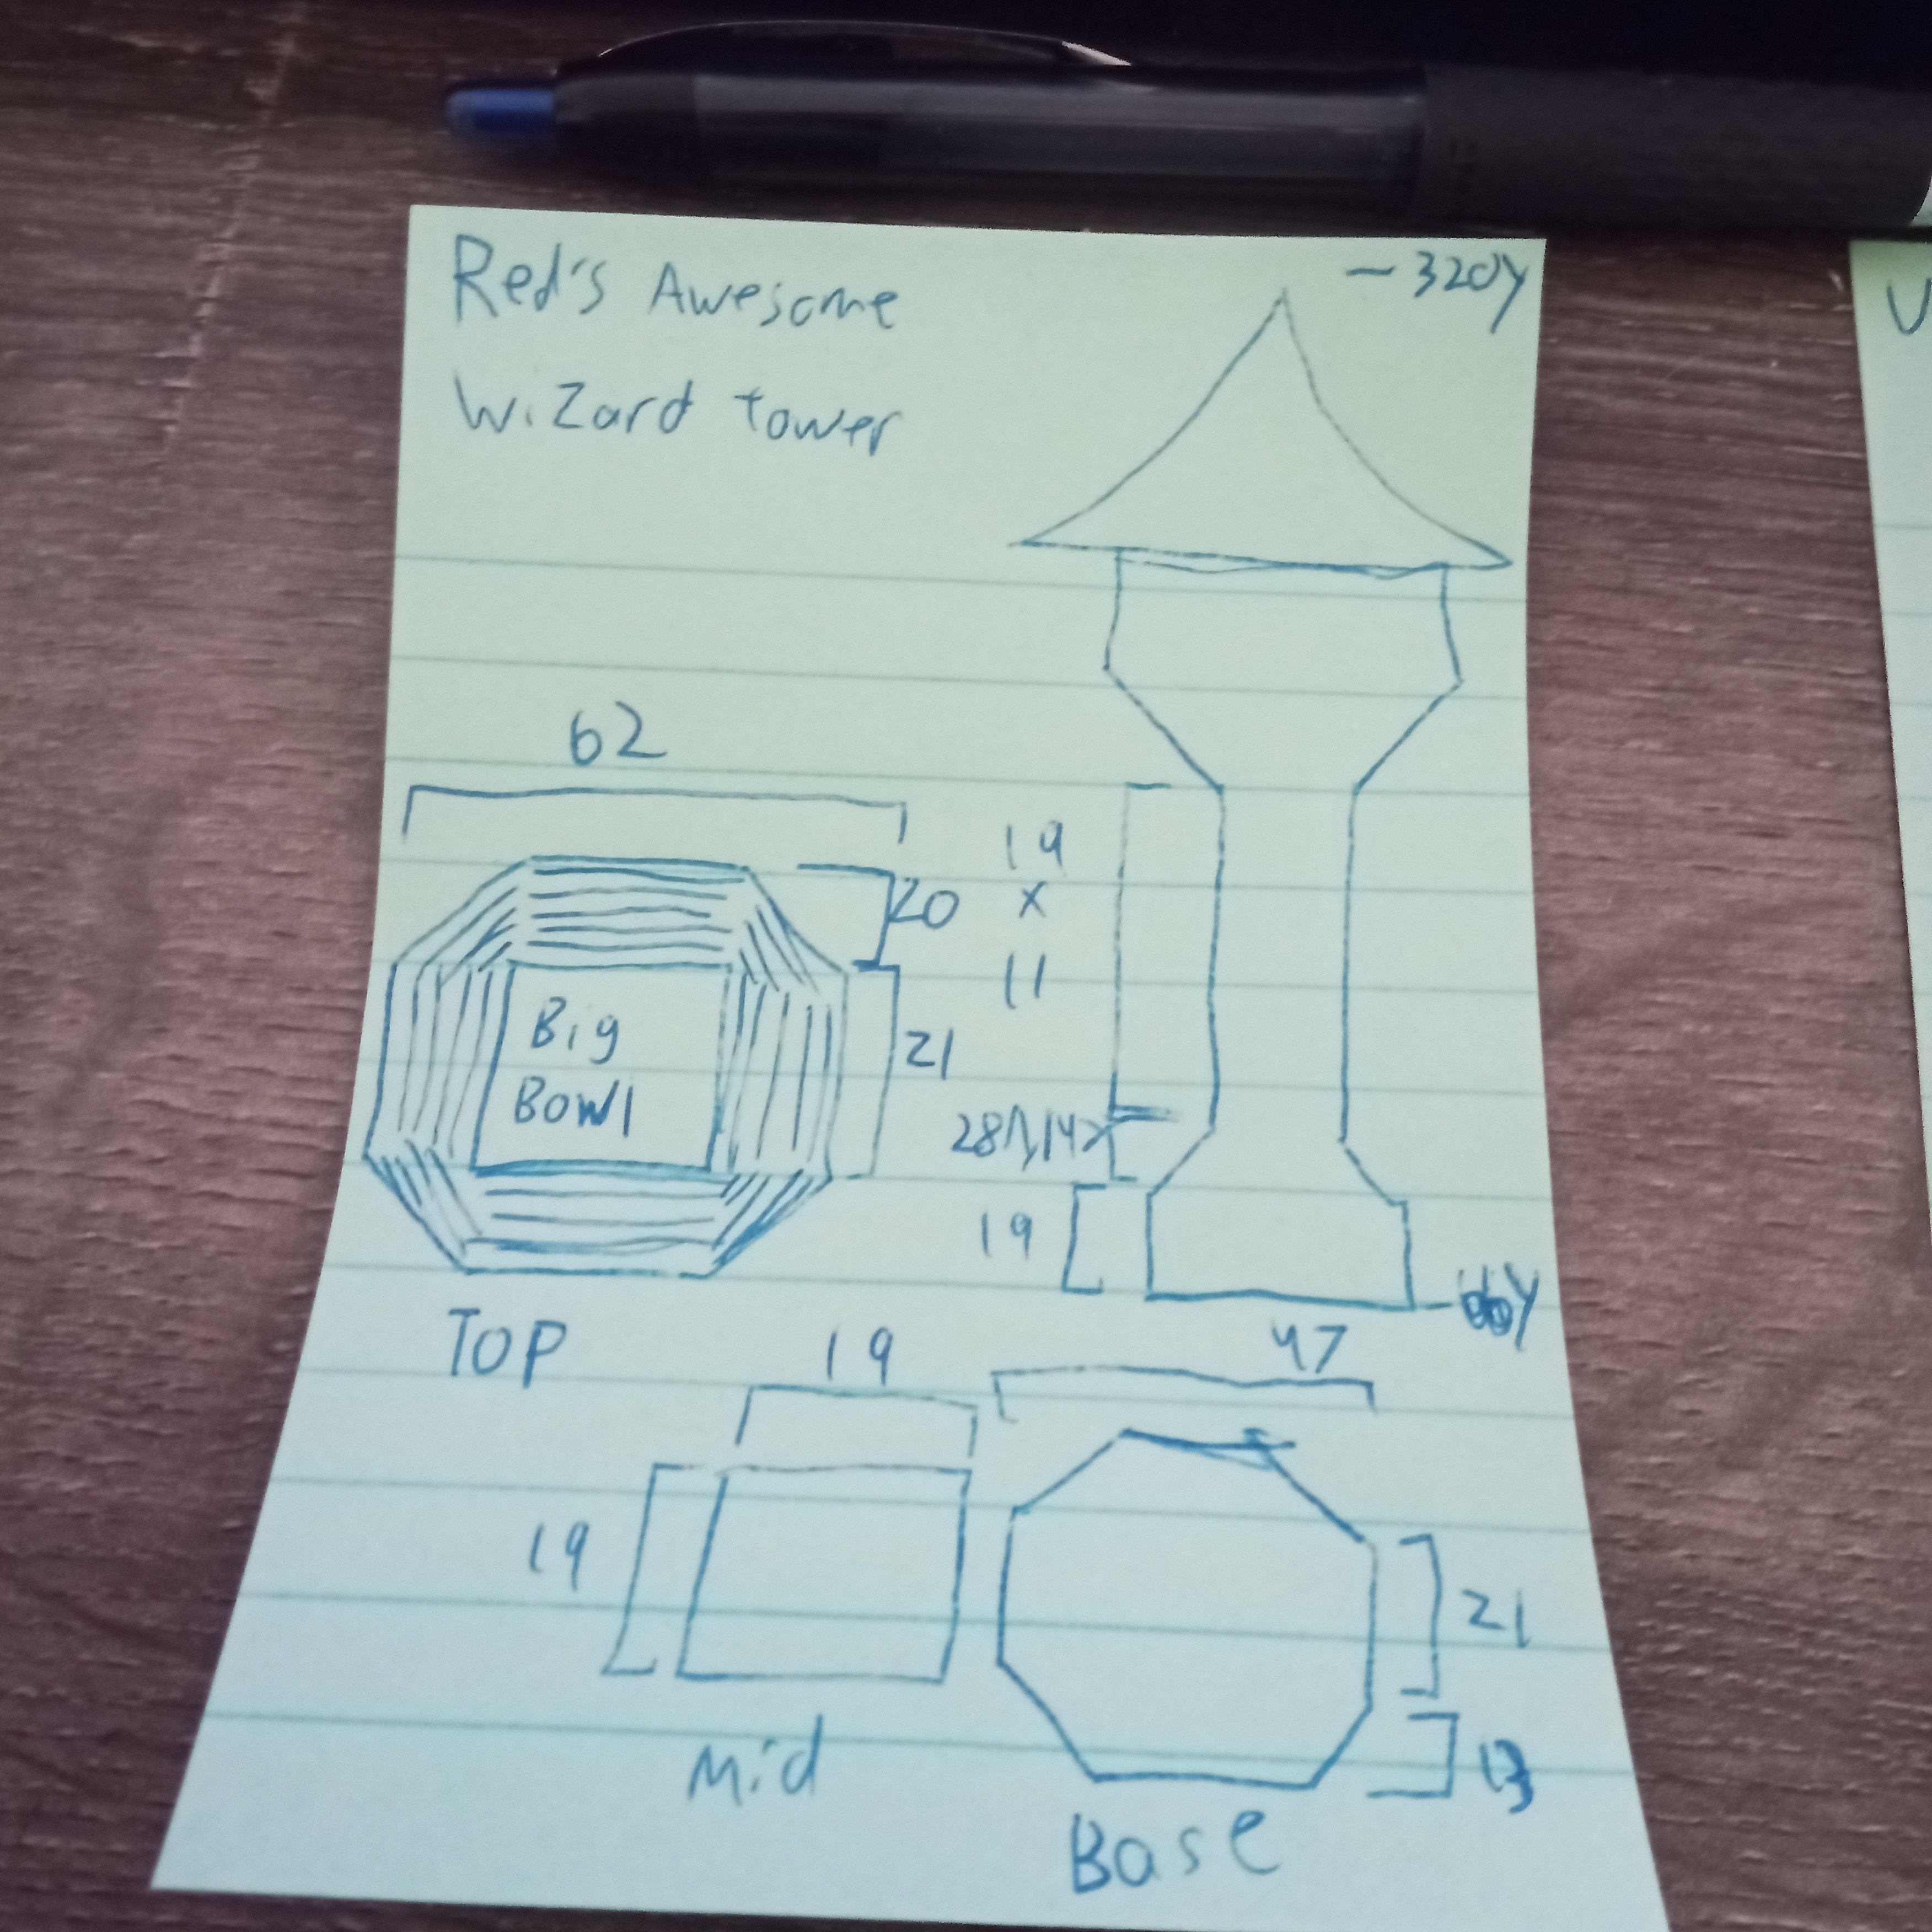 Red's Awesome
Wizard tower
- 320y
62
20
21
Big
Bowl
TOP
19
x
11
19
47
19
19
Mid
21
13
Base